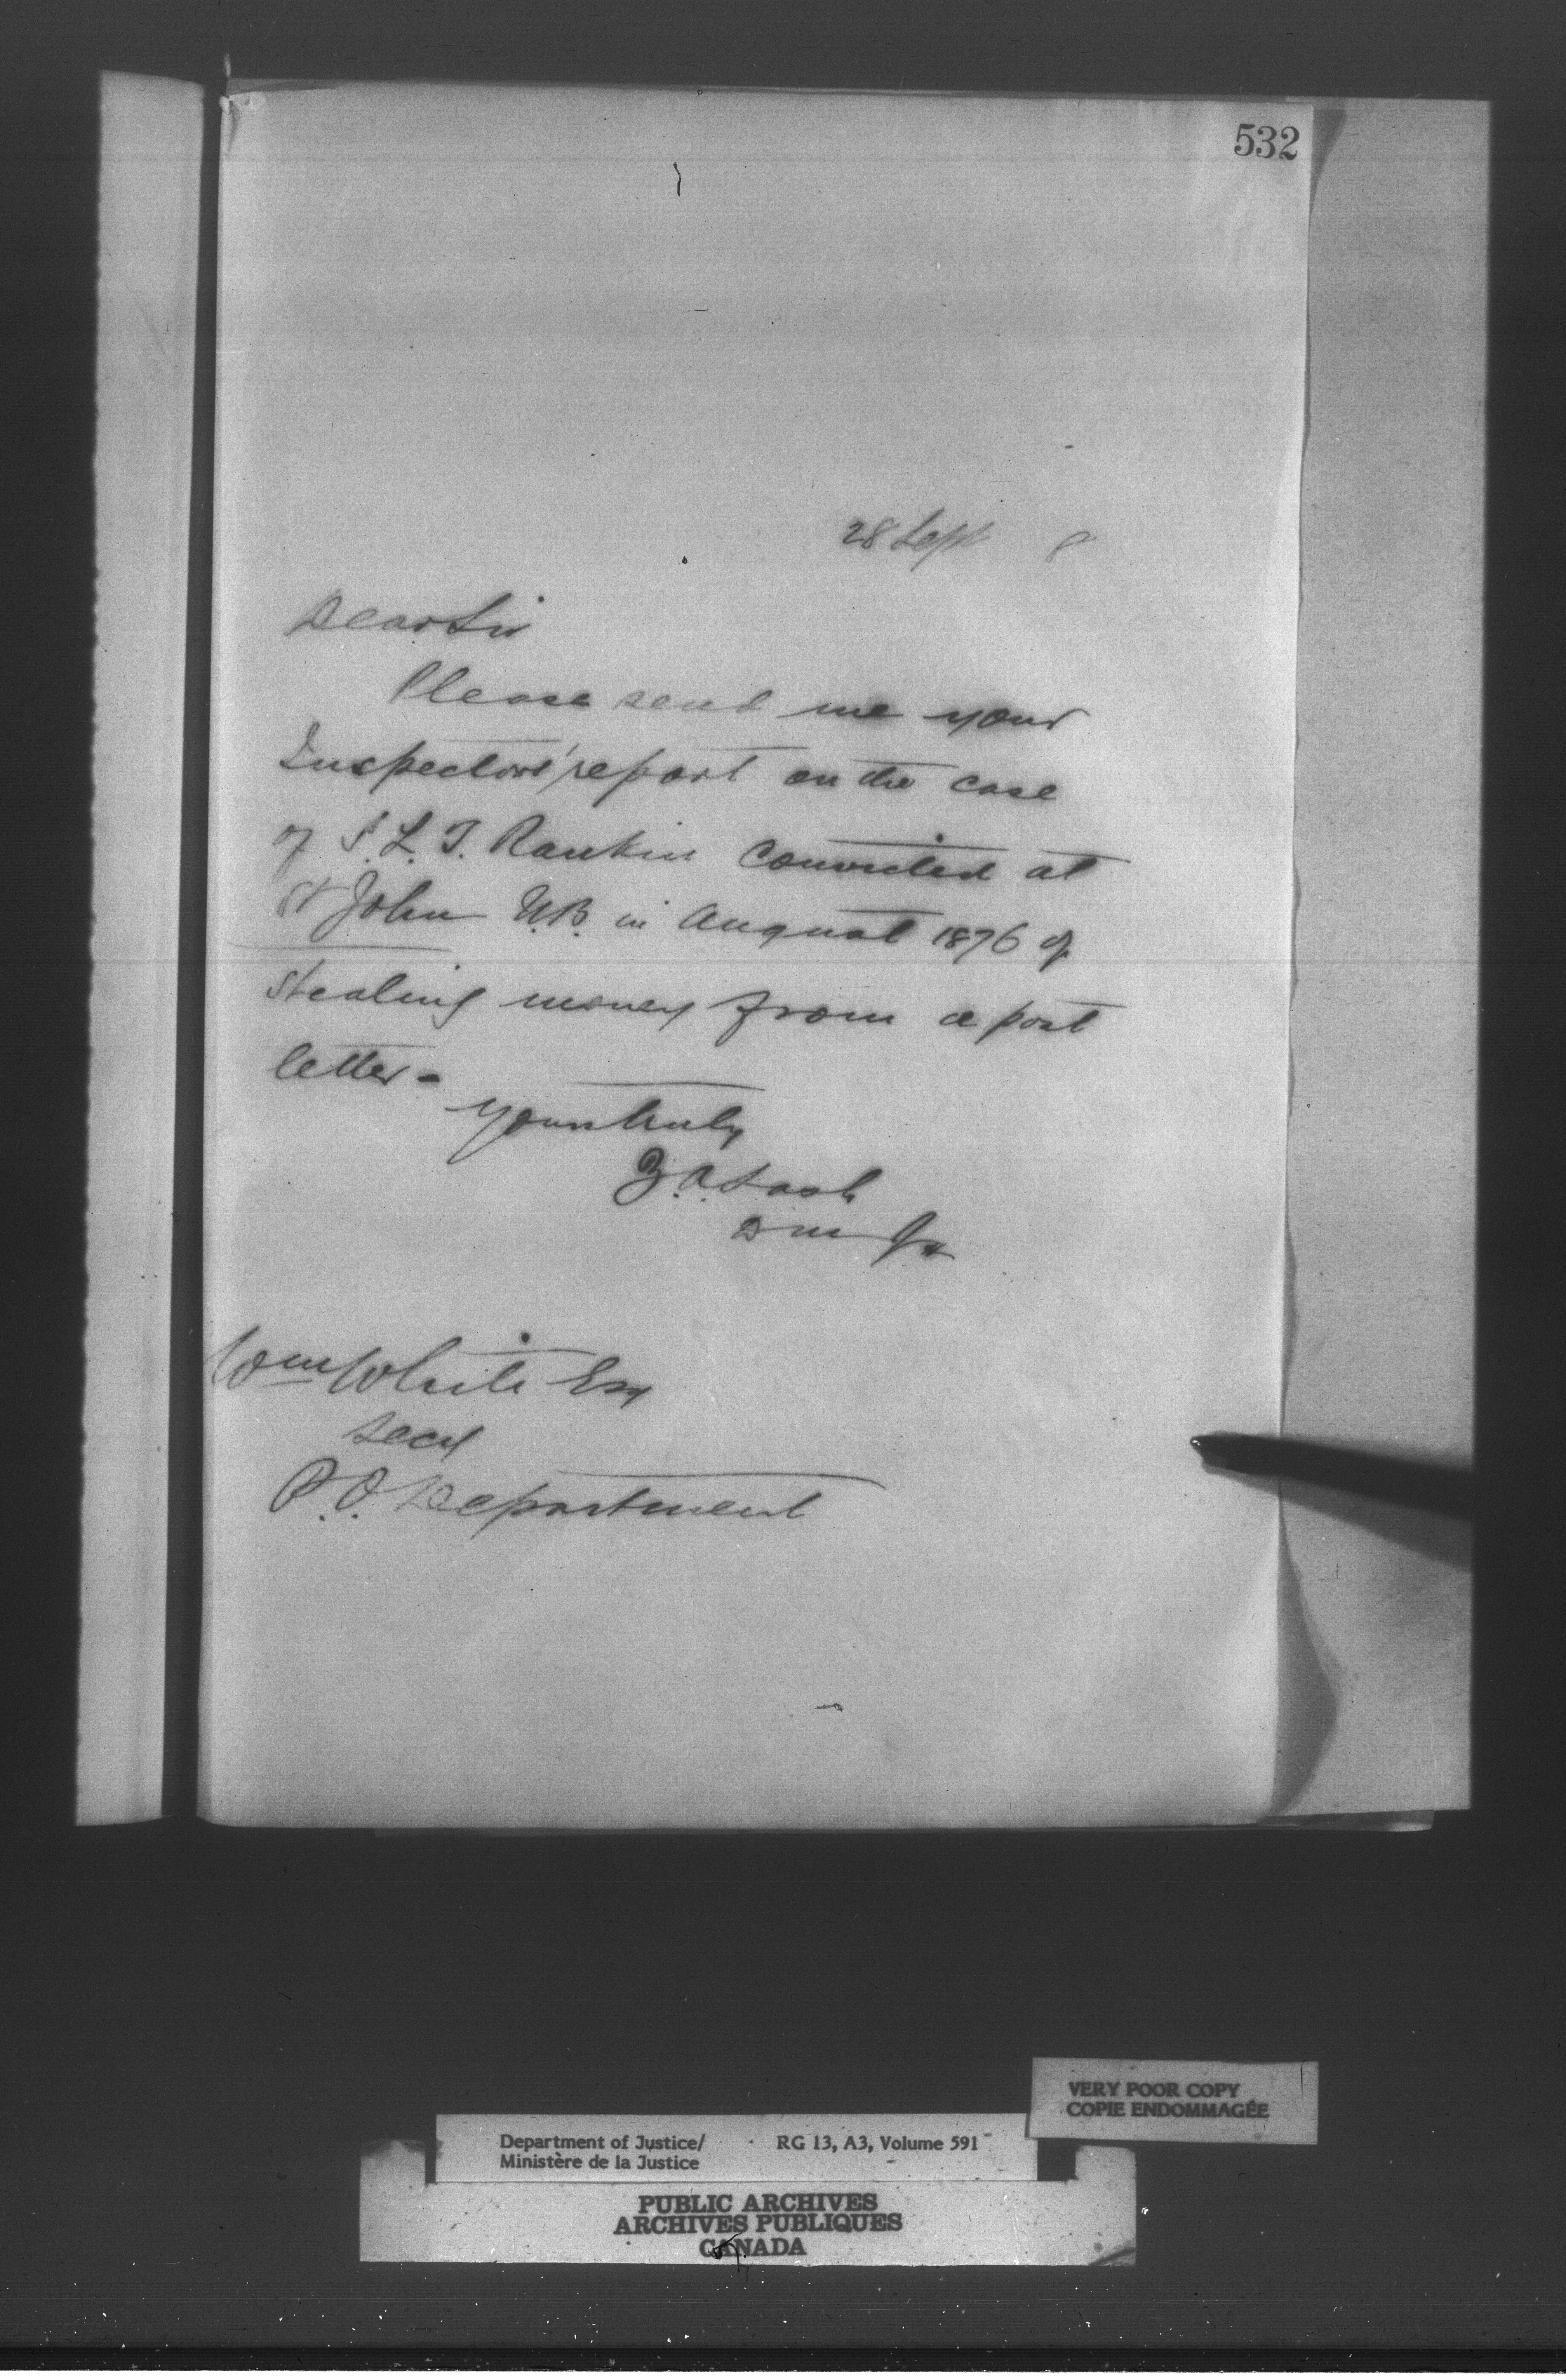 532
28 Sept 8
Dear Sir
Please send me your
Inspectors' report on the case
of S. L. T. Rankin convicted at
St John N.B. in August 1876 of
stealing money from a post
letter -
yours truly
Z. A. Lash
D M J
Wm White Esq
Secy
P. O. Department
VERY POOR COPY
COPIE ENDOMMAGÉE
Department of Justice/ RG 13, A3, Volume 591
Ministère de la Justice
PUBLIC ARCHIVES
ARCHIVES PUBLIQUES
CANADA